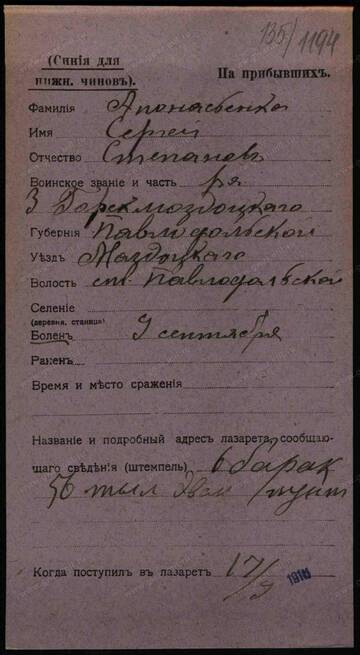 135/1194
(Синія для нижн. чиновъ).
На прибывшихъ.
Фамилія Апонасьенко
Имя Сергей
Отчество Степановъ
Воинское званіе и часть р-я
3 Горск моздоцкаго
Губернія Павлодольской
Уѣздъ Моздоцкаго
Волость ст. Павлодольской
Селеніе
(деревня, станица)
Боленъ 9 сентября
Раненъ
Время и мѣсто сраженія
Названіе и подробный адресъ лазарета, сообщаю-
щаго свѣдѣнія (штемпель) 6 барак
56 тыл эвак пункт
Когда поступилъ въ лазаретъ 17/9 1916